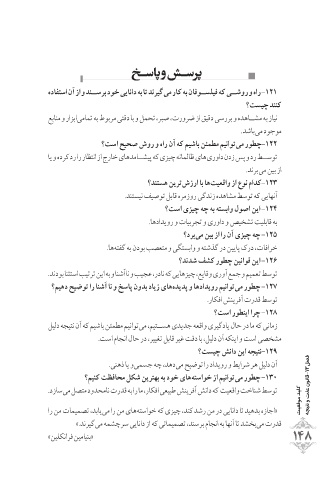 پرسـش و پاسـخ
۱۲۱- راه و روشـی که فیلسـوفان به کار می گیرند تا به دانایی خود برسـند و از آن استفاده
کنند چیست؟
نیاز به مشـاهده و بررسی دقیق از ضرورت، صبر، تحمل و با دقتی مربوط به تمامی ابزار و منابع
موجود می باشد.
۱۲۲- چطور می توانیم مطمئن باشیم که آن راه و روش صحیح است؟
توسط رد و پس زدن داوری های ظالمانه چیزی که پیشـامدهای خارج از انتظار را رد کرده و یا
از بین می برند.
۱۲۳- کدام نوع از واقعیت ها با ارزش ترین هستند؟
آنهایی که توسط مشاهده زندگی روزمره قابل توصیف نیستند.
۱۲۴- این اصول وابسته به چه چیزی است؟
به قابلیت تشخیص و داوری و تجربیات و رویدادها.
۱۲۵- چه چیزی آن را از بین می برد؟
خرافات، درک پایین در گذشته و وابستگی و متعصب بودن به گفته ها.
۱۲۶- این قوانین چطور کشف شدند؟
توسط تعمیم و جمع آوری وقایع، چیزهایی که نادر، عجیب و ناآشنا و به این ترتیب استثنا بودند.
۱۲۷- چطور می توانیم رویدادها و پدیده های زیاد بدون پاسخ و نا آشنا را توضیح دهیم؟
توسط قدرت آفرینش افکار.
۱۲۸- چرا اینطور است؟
زمانی که ما در حال یادگیری واقعه جدیدی هستیم، می توانیم مطمئن باشیم که آن نتیجه دلیل
مشخصی است و اینکه آن دلیل، با دقت غیر قابل تغییر، در حال انجام است.
۱۲۹- نتیجه این دانش چیست؟
آن دلیل هر شرایط و رویداد را توضیح می دهد، چه جسمی و یا ذهنی.
۱۳۰- چطور می توانیم از خواسته های خود به بهترین شکل محافظت کنیم؟
توسط شناخت واقعیت که دانش آفرینش طبیعی افکار، ما را به قدرت نامحدود متصل می سازد.
«اجازه بدهید تا دانایی در من رشد کند، چیزی که خواسته های من را می یابد، تصمیمات من را
قدرت می بخشد تا آنها به انجام برسند، تصمیماتی که از دانایی سرچشمه می گیرند.»
«بنیامین فرانکلین»
کلید موفقیت
فصل ۱۳: قانون علت و نتیجه
۱۴۸